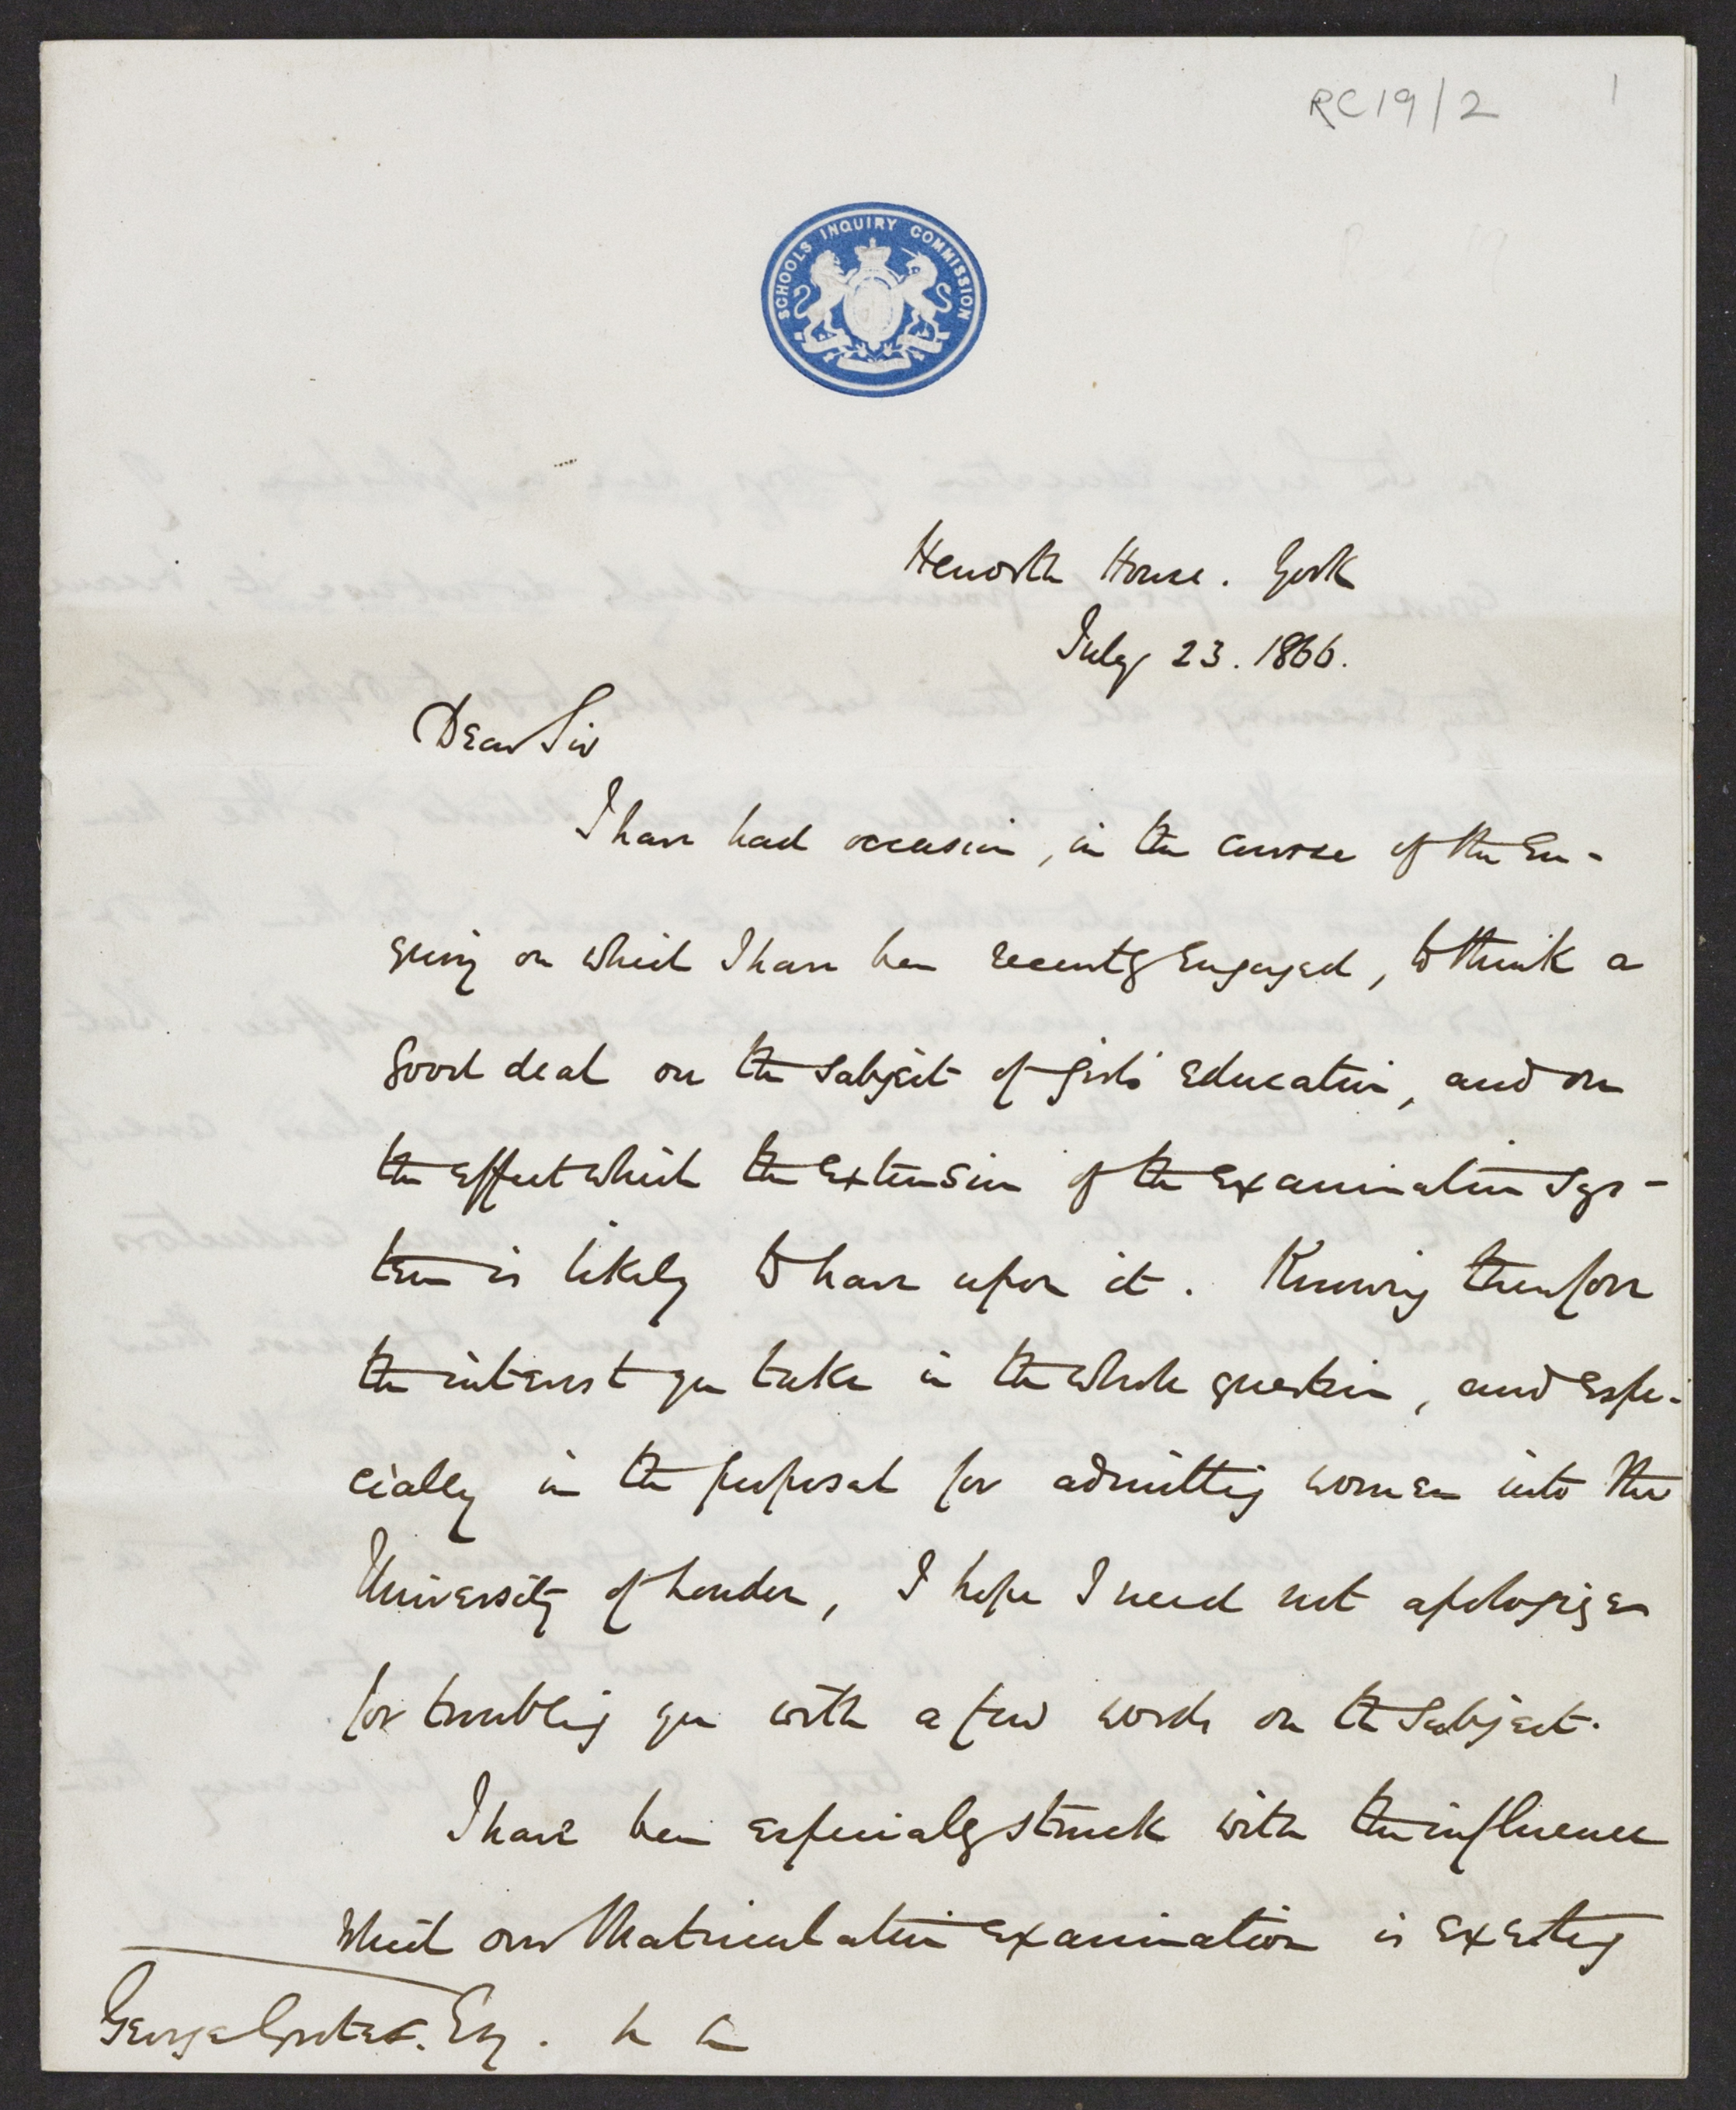 RC19/2 1
SCHOOLS INQUIRY COMMISSION
Heworth House. York
July 23. 1866.
Dear Sir
I have had occasion, in the course of the En-
quiry on which I have been recently engaged, to think a
good deal on the subject of girls' education, and on
the effect which the extension of the examination sys-
tem is likely to have upon it. Knowing therefore
the interest you take in the whole question, and espe-
cially in the proposal for admitting women into the
University of London, I hope I need not apologize
for troubling you with a few words on the subject.
I have been especially struck with the influence
which our Matriculation examination is exerting
George Grote Esq.